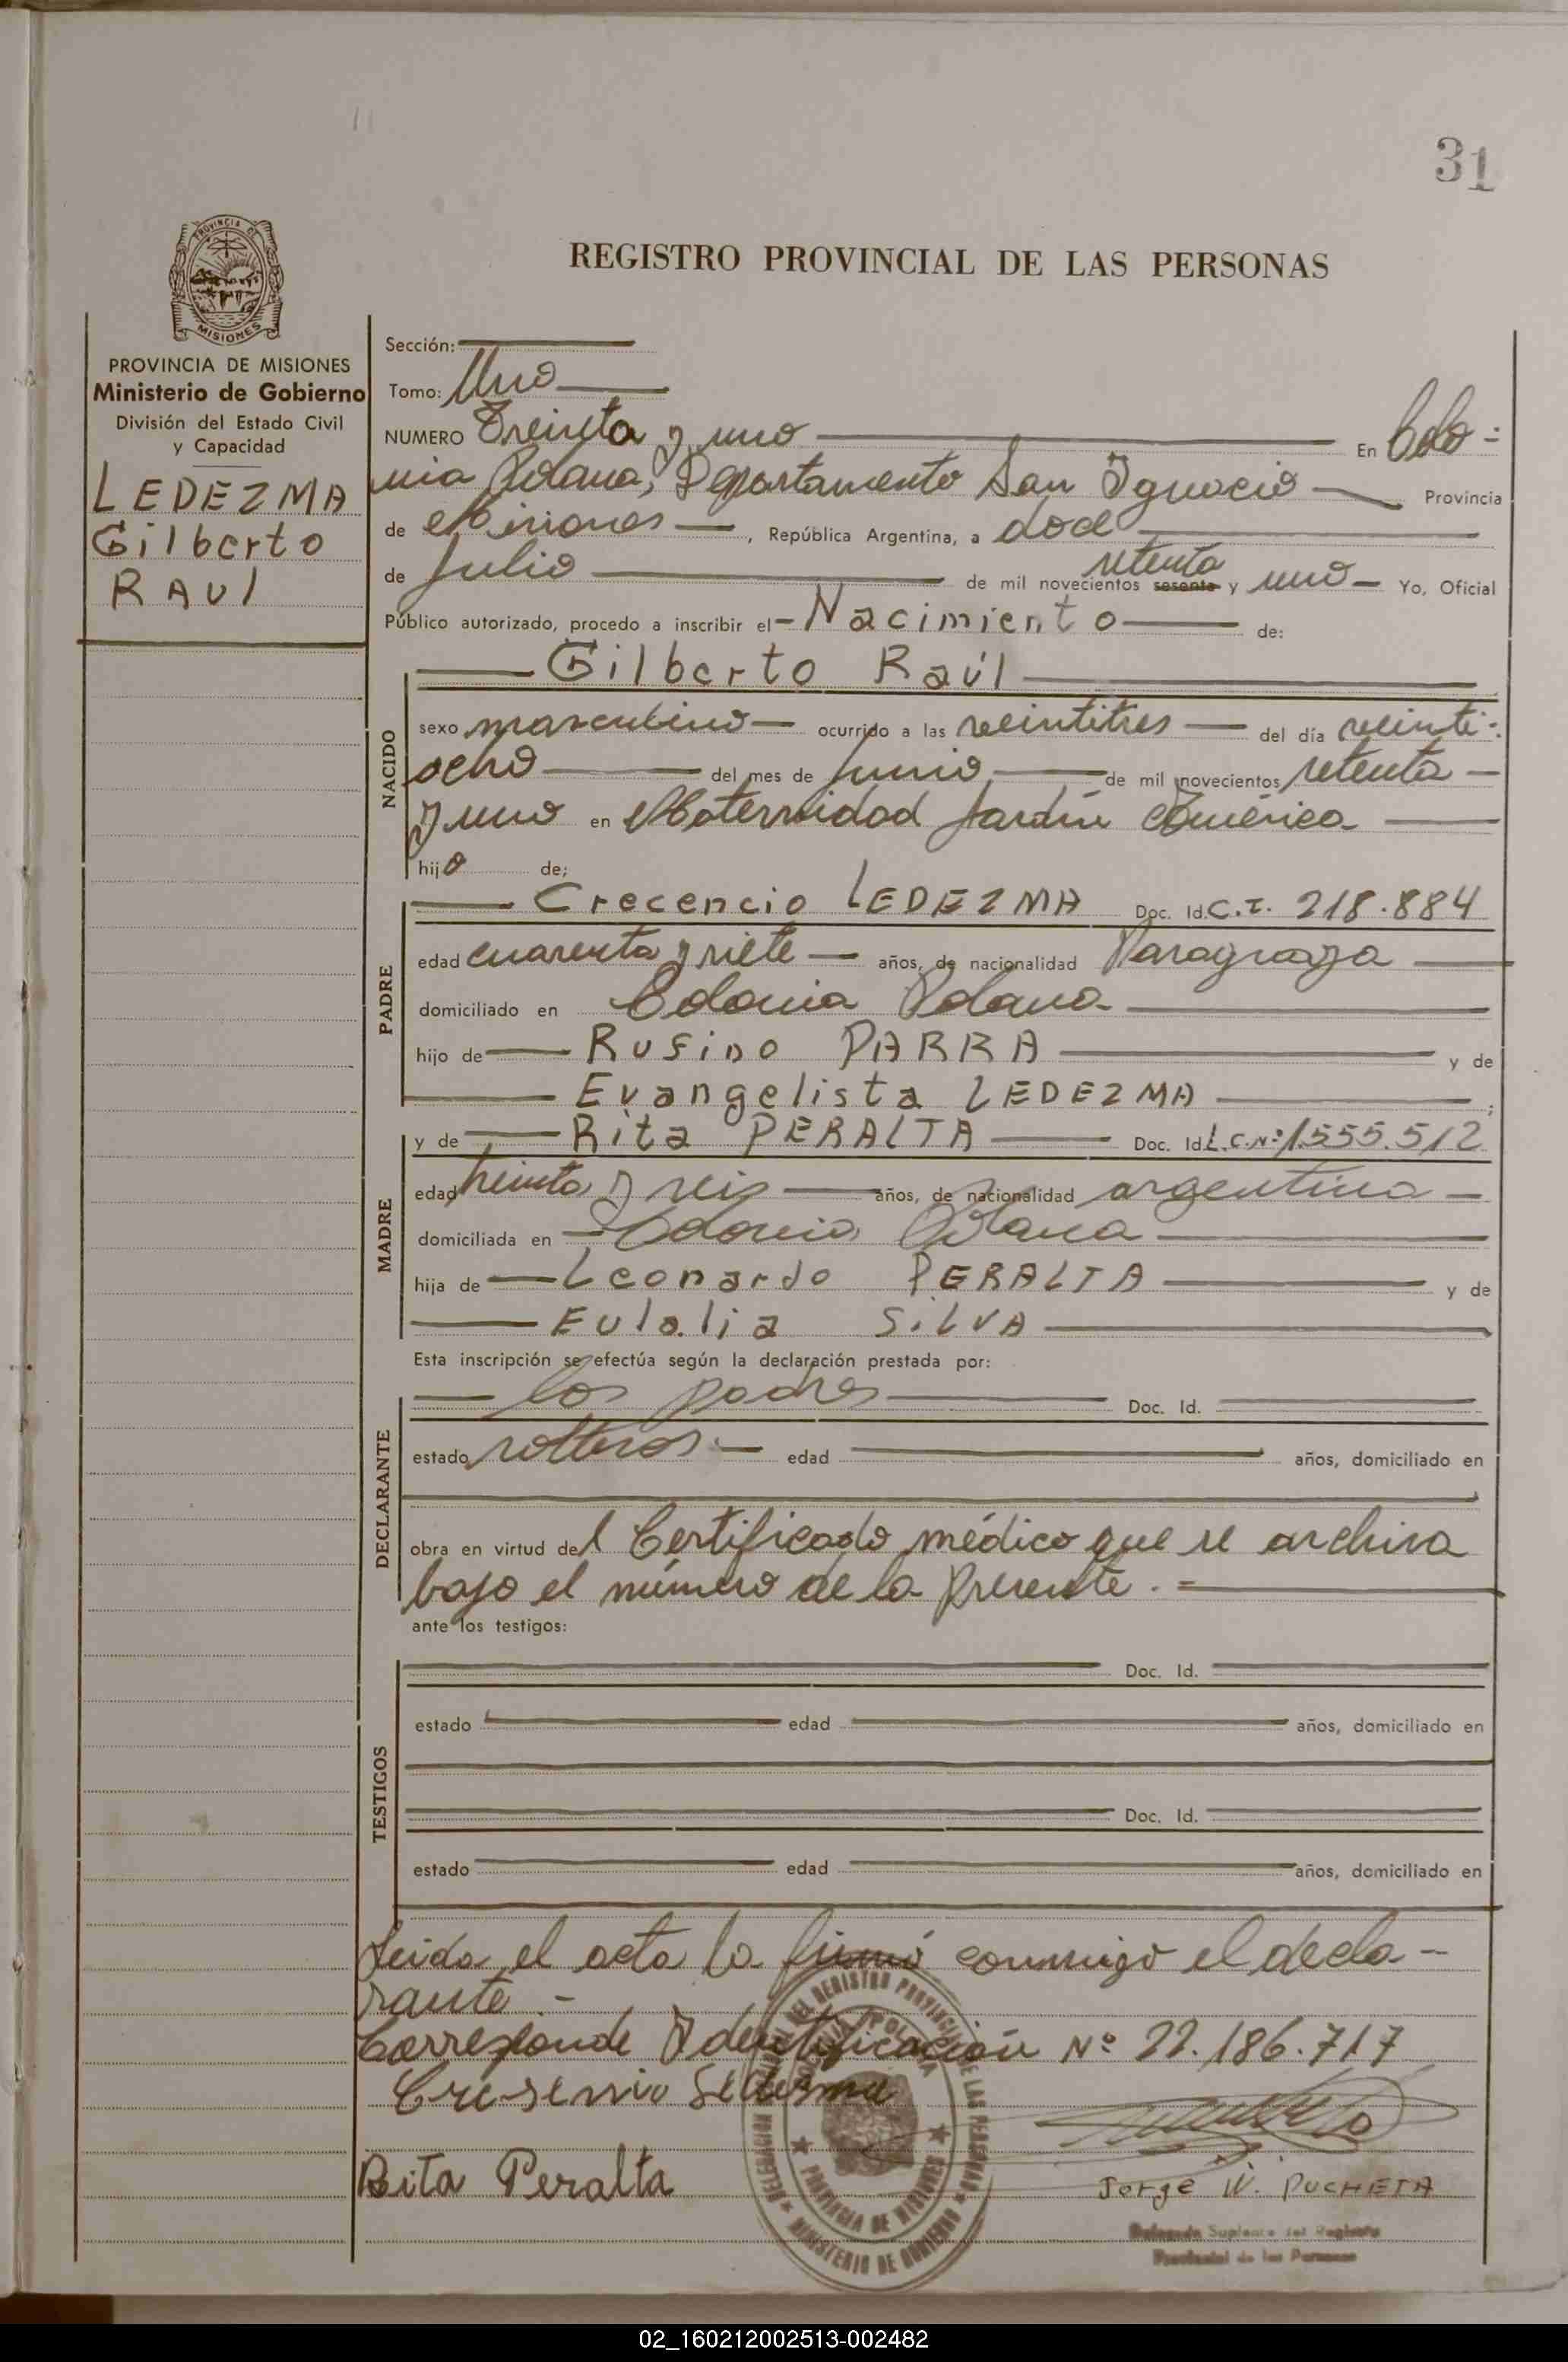 31
REGISTRO PROVINCIAL DE LAS PERSONAS
PROVINCIA DE
MISIONES
PROVINCIA DE MISIONES
Ministerio de Gobierno
División del Estado Civil
y Capacidad
LEDEZMA
Gilberto
RAUl
Sección:
Tomo: Uno
NUMERO Treinta y uno En Colo=
nia Polana, Departamento San Ignacio Provincia
de Misiones, República Argentina, a doce
de Julio de mil novecientos sesenta setenta y uno Yo, Oficial
Público autorizado, procedo a inscribir el Nacimiento de:
Gilberto Raúl
NACIDO
sexo masculino ocurrido a las veintitres del día veinti-
ocho del mes de Junio de mil novecientos setenta
y uno en Maternidad Jardín América
hijo de;
PADRE
Crecencio LEDEZMA Doc. Id. C.I. 218.884
edad cuarenta y siete años, de nacionalidad Paraguaya
domiciliado en Colonia Polana
hijo de Rufino PARRA y de
Evangelista LEDEZMA;
MADRE
y de Rita PERALTA Doc. Id. L.C.Nº 1.555.512
edad treinta y seis años, de nacionalidad argentina
domiciliada en Colonia Polana
hija de Leonardo PERALTA y de
Eulalia SilVA
Esta inscripción se efectúa según la declaración prestada por:
DECLARANTE
los padres Doc. Id.
estado solteros.- edad años, domiciliado en
obra en virtud del Certificado médico que se archiva
bajo el número de la presente.=
ante los testigos:
TESTIGOS
Doc. Id.
estado edad años, domiciliado en
Doc. Id.
estado edad años, domiciliado en
Leida el acta la firmó conmigo el decla-
rante.-
Corresponde Identificación Nº 22.186.717
Cresensio Ledesma
Rita Peralta
Jorge W. PUCHETA
Delegado Suplente del Registro
Provincial de las Personas
DELEGACION DEL REGISTRO PROVINCIAL DE LAS PERSONAS
PROVINCIA DE MISIONES
MINISTERIO DE GOBIERNO
02_160212002513-002482